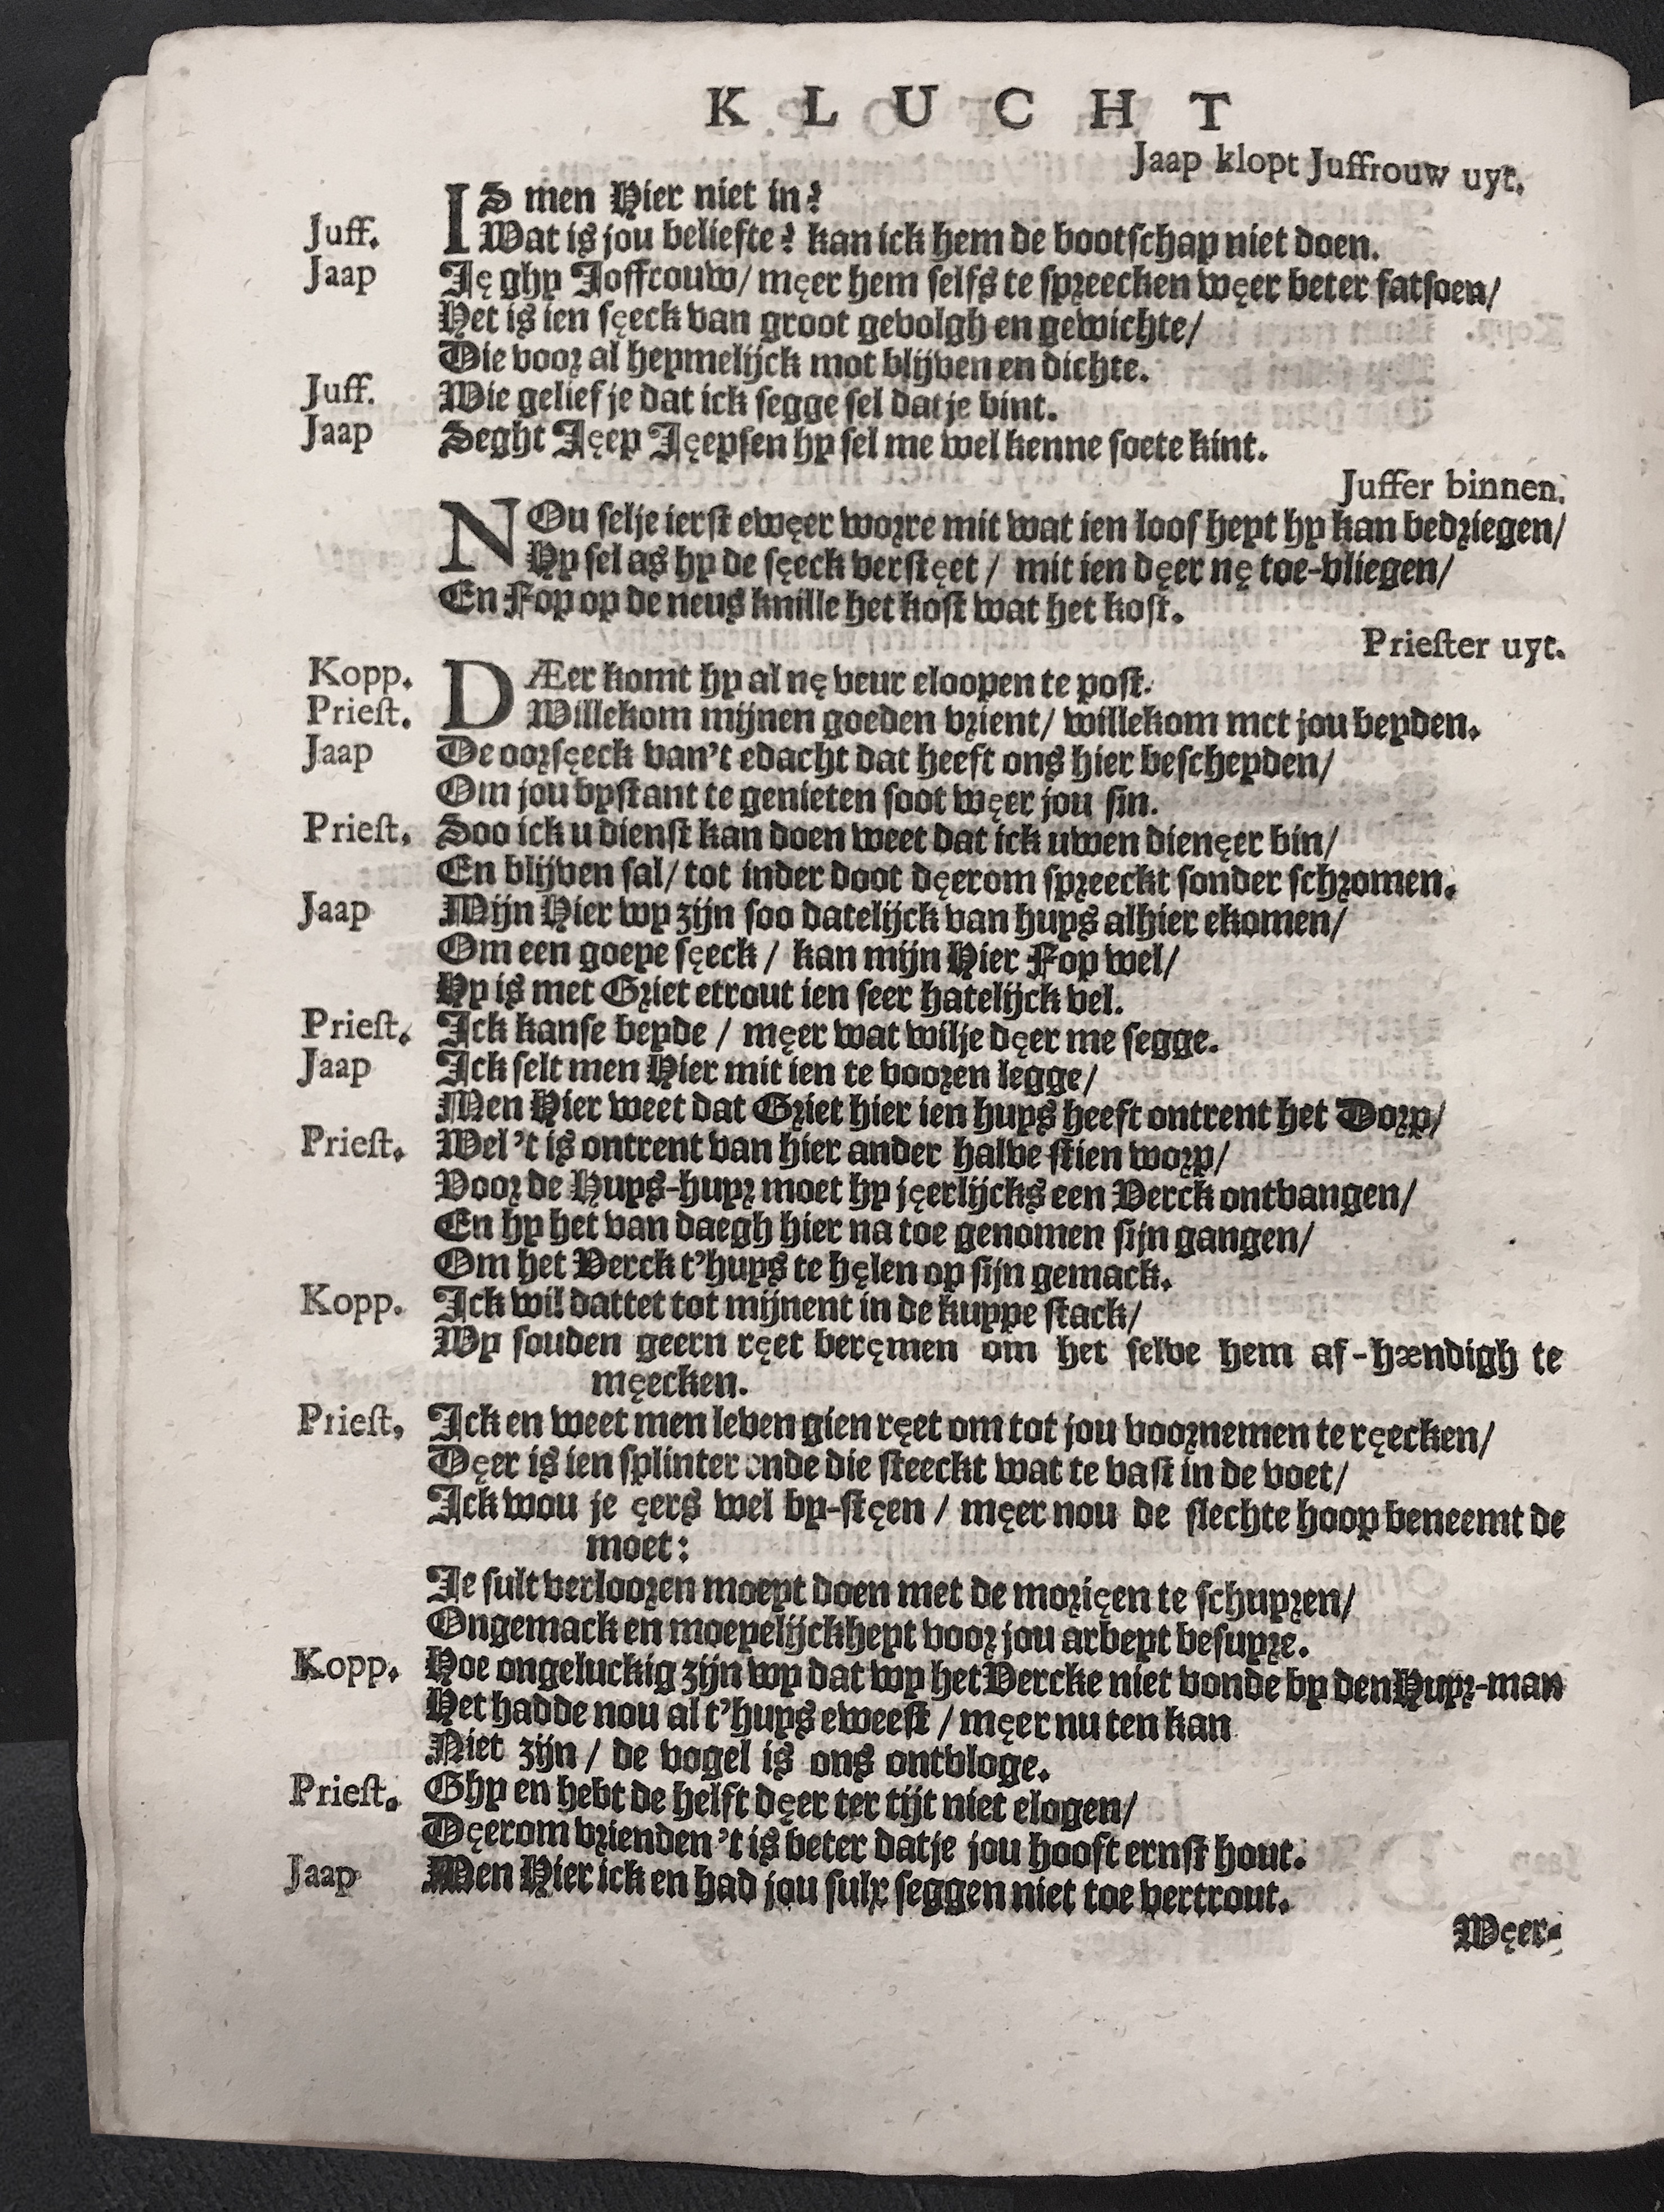 KLUCHT
Jaap klopt Juffrouw uyt.
IS men Hier niet in?
Juff. Wat is jou beliefte? kan ick hem de bootschap niet doen.
Jaap Ję ghy Joffrouw/ męer hem selfs te spreecken węer beter fatsoen/
Het is ien sęeck van groot gevolgh en gewichte/
Die voor al heymelijck mot blijven en dichte.
Juff. Wie gelief je dat ick segge sel dat je bint.
Jaap Seght Jęep Jęepsen hy sel me wel kenne soete kint.
Juffer binnen.
NOu selje ierst ewęer worre mit wat ien loosheyt hy kan bedriegen/
Hy sel as hy de sęeck verstęet / mit ien dęer nę toe-vliegen/
En Fop op de neus knille het kost wat het kost.
Priester uyt.
Kopp. DÆer komt hy al nę veur eloopen te post.
Priest. Willekom mijnen goeden vrient/ willekom met jou beyden.
Jaap De oorsęeck van't edacht dat heeft ons hier bescheyden/
Om jou bystant te genieten soot węer jou sin.
Priest. Soo ick u dienst kan doen weet dat ick uwen dienęer bin/
En blijven sal/ tot inder doot dęerom spreeckt sonder schromen.
Jaap Mijn Hier wy zijn soo datelijck van huys alhier ekomen/
Om een goeye sęeck / kan mijn Hier Fop wel/
Hy is met Griet etrout ien seer hatelijck vel.
Priest. Ick kanse beyde / męer wat wilje dęer me segge.
Jaap Ick selt men Hier mit ien te vooren legge/
Men Hier weet dat Griet hier ien huys heeft ontrent het Dorp/
Priest. Wel 't is ontrent van hier ander halve stien worp/
Voor de Huys-huyr moet hy jęerlijcks een Verck ontvangen/
En hy het van daegh hier na toe genomen sijn gangen/
Om het Verck t'huys te hęlen op sijn gemack.
Kopp. Ick wil dattet tot mijnent in de kuppe stack/
Wy souden geern ręet beręmen om het selve hem af-hændigh te
męecken.
Priest. Ick en weet men leven gien ręet om tot jou voornemen te ręecken/
Dęer is ien splinter onde die steeckt wat te vast in de voet/
Ick wou je ęers wel by-stęen / męer nou de slechte hoop beneemt de
moet:
Je sult verlooren moeyt doen met de morięen te schuyren/
Ongemack en moeyelijckheyt voor jou arbeyt besuyre.
Kopp. Hoe ongeluckig zijn wy dat wy het Vercke niet vonde by den Huyr-man
Het hadde nou al t'huys eweest / męer nu ten kan
Niet zijn / de vogel is ons ontvloge.
Priest. Ghy en hebt de helft dęer ter tijt niet elogen/
Dęerom vrienden 't is beter datje jou hooft ernst hout.
Jaap Men Hier ick en had jou sulx seggen niet toe vertrout.
Węer-